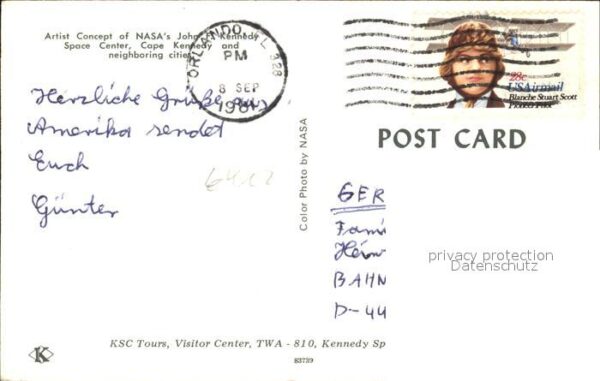 Artist Concept of NASA's John F. Kennedy
Space Center, Cape Kennedy and
neighboring cities
ORLANDO, FL 328
PM
8 SEP
1981
28c
USAirmail
Blanche Stuart Scott
Pioneer Pilot
POST CARD
Herzliche Grüße aus
Amerika sendet
Euch
Günter
Color Photo by NASA
GER
Fami
BAHN
D-44
privacy protection
Datenschutz
KSC Tours, Visitor Center, TWA - 810, Kennedy Sp
K
83739